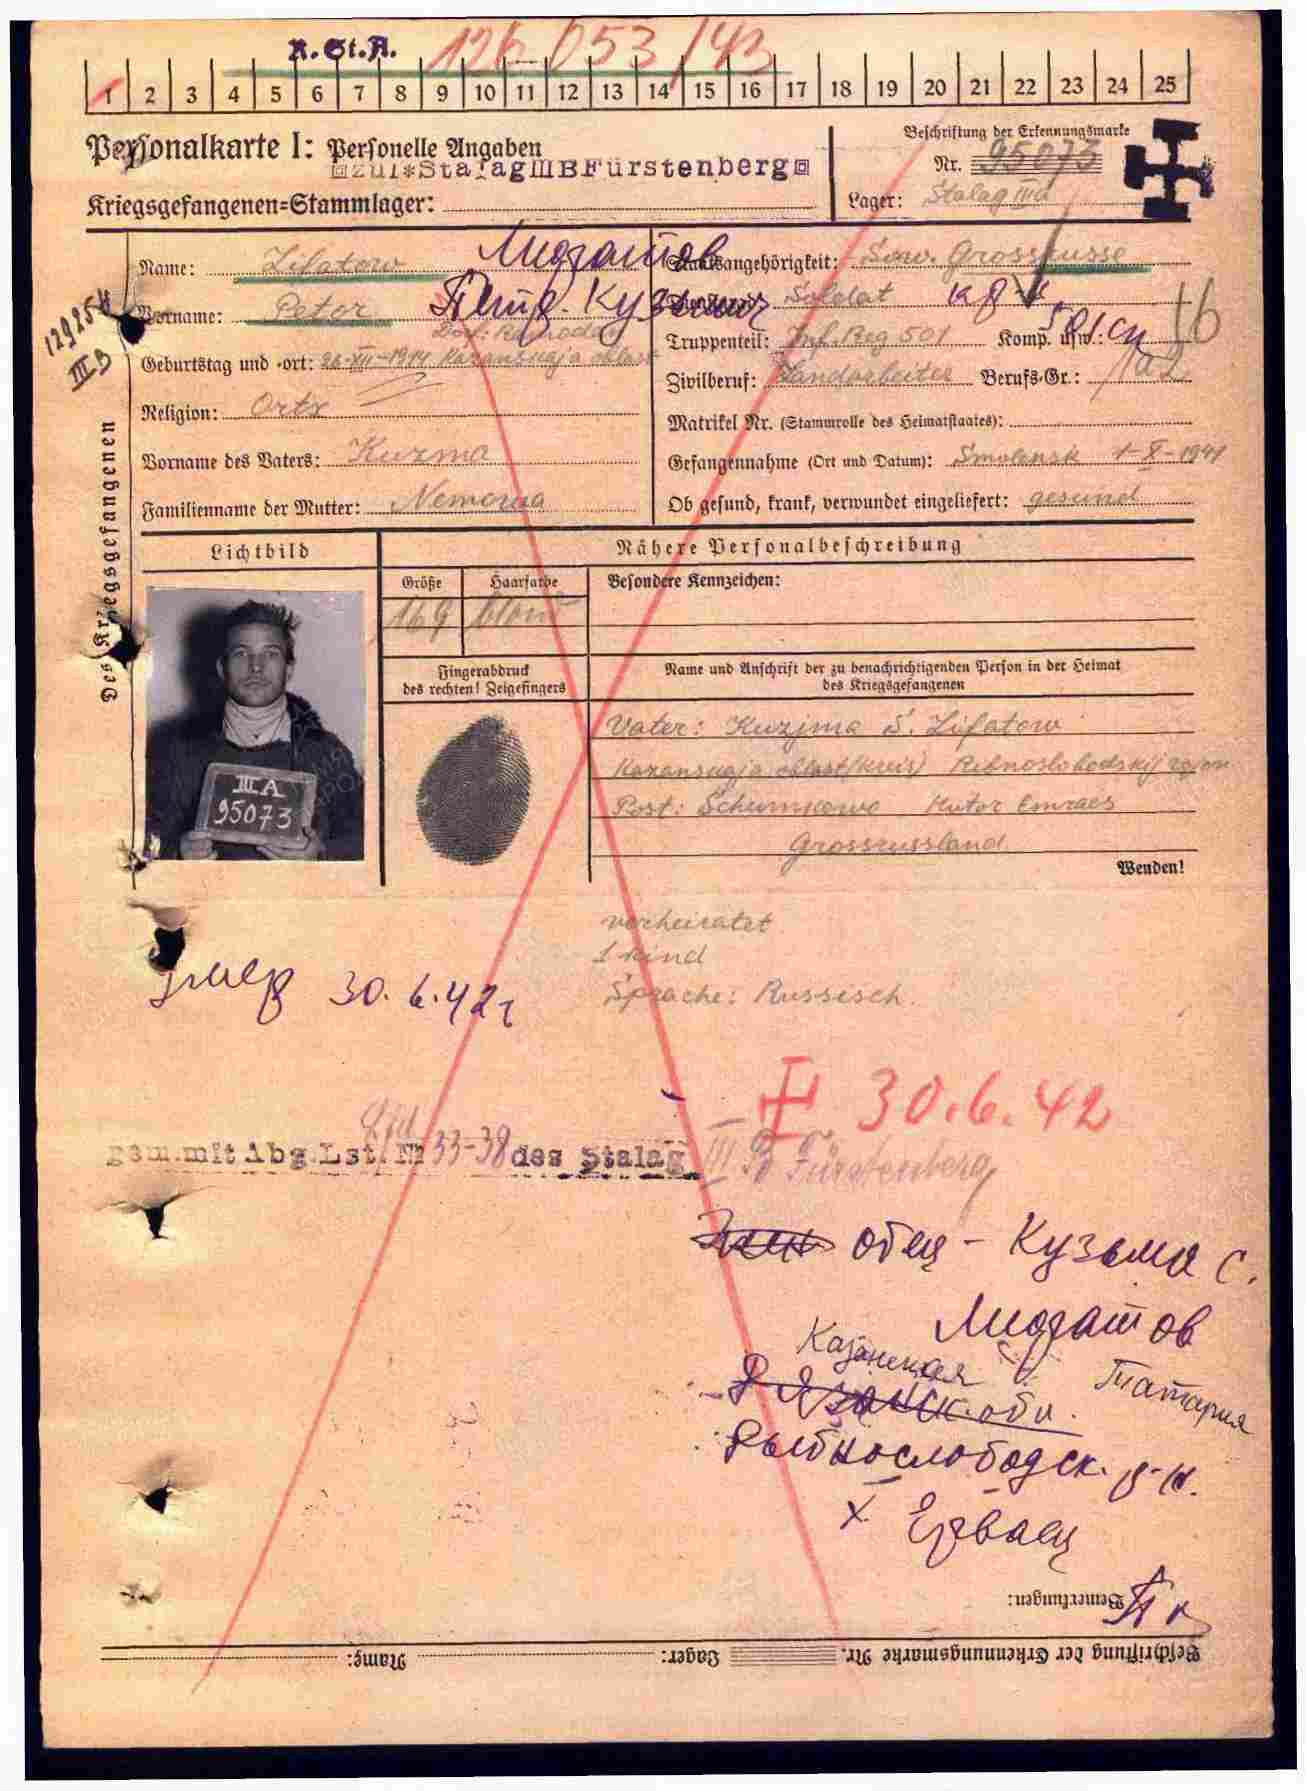 R. St. A. 126 053/42
1 2 3 4 5 6 7 8 9 10 11 12 13 14 15 16 17 18 19 20 21 22 23 24 25
Personalkarte I: Personelle Angaben
zul*Stalag III B Fürstenberg
Kriegsgefangenen-Stammlager:
Beschriftung der Erkennungsmarke
Nr. 95073
Lager: Stalag III A
129254
III B
Des Kriegsgefangenen
Name: Lifatow
Vorname: Peter Петр Кузьмич
Geburtstag und -ort: 26-XII-1914 Kazanskaja oblast
Religion: Ortx
Vorname des Vaters: Kuzma
Familienname der Mutter:
Staatsangehörigkeit: Sow. Grossrusse
Soldat
Truppenteil: Inf. Reg 501 Komp. usw.: 501 сп
Zivilberuf: Landarbeiter Berufs-Gr.:
Matrikel Nr. (Stammrolle des Heimatstaates):
Gefangennahme (Ort und Datum): Smolensk 1-X-1941
Ob gesund, krank, verwundet eingeliefert: gesund
Lichtbild
III A
95073
Nähere Personalbeschreibung
Größe Haarfarbe Besondere Kennzeichen:
169 blond
Fingerabdruck
des rechten! Zeigefingers
Name und Anschrift der zu benachrichtigenden Person in der Heimat
des Kriegsgefangenen
Vater: Kuzjma S. Lifatow
Kazanskaja oblast (kreis) Ribnoslobodskij rajon
Post: Schumkowo Hutor
Grossrussland
Wenden!
verheiratet
1 kind
Sprache: Russisch.
умер 30.6.42г
30.6.42
gem. mit Abg. Lst. Nr 33-38 des Stalag III B Fürstenberg
отец - Кузьма С.
Казанская
Татария
Рязанск. обл.
Рыбнослободск. р-н.
х.
Bemerkungen:
Beschriftung der Erkennungsmarke Nr. Lager: Name: